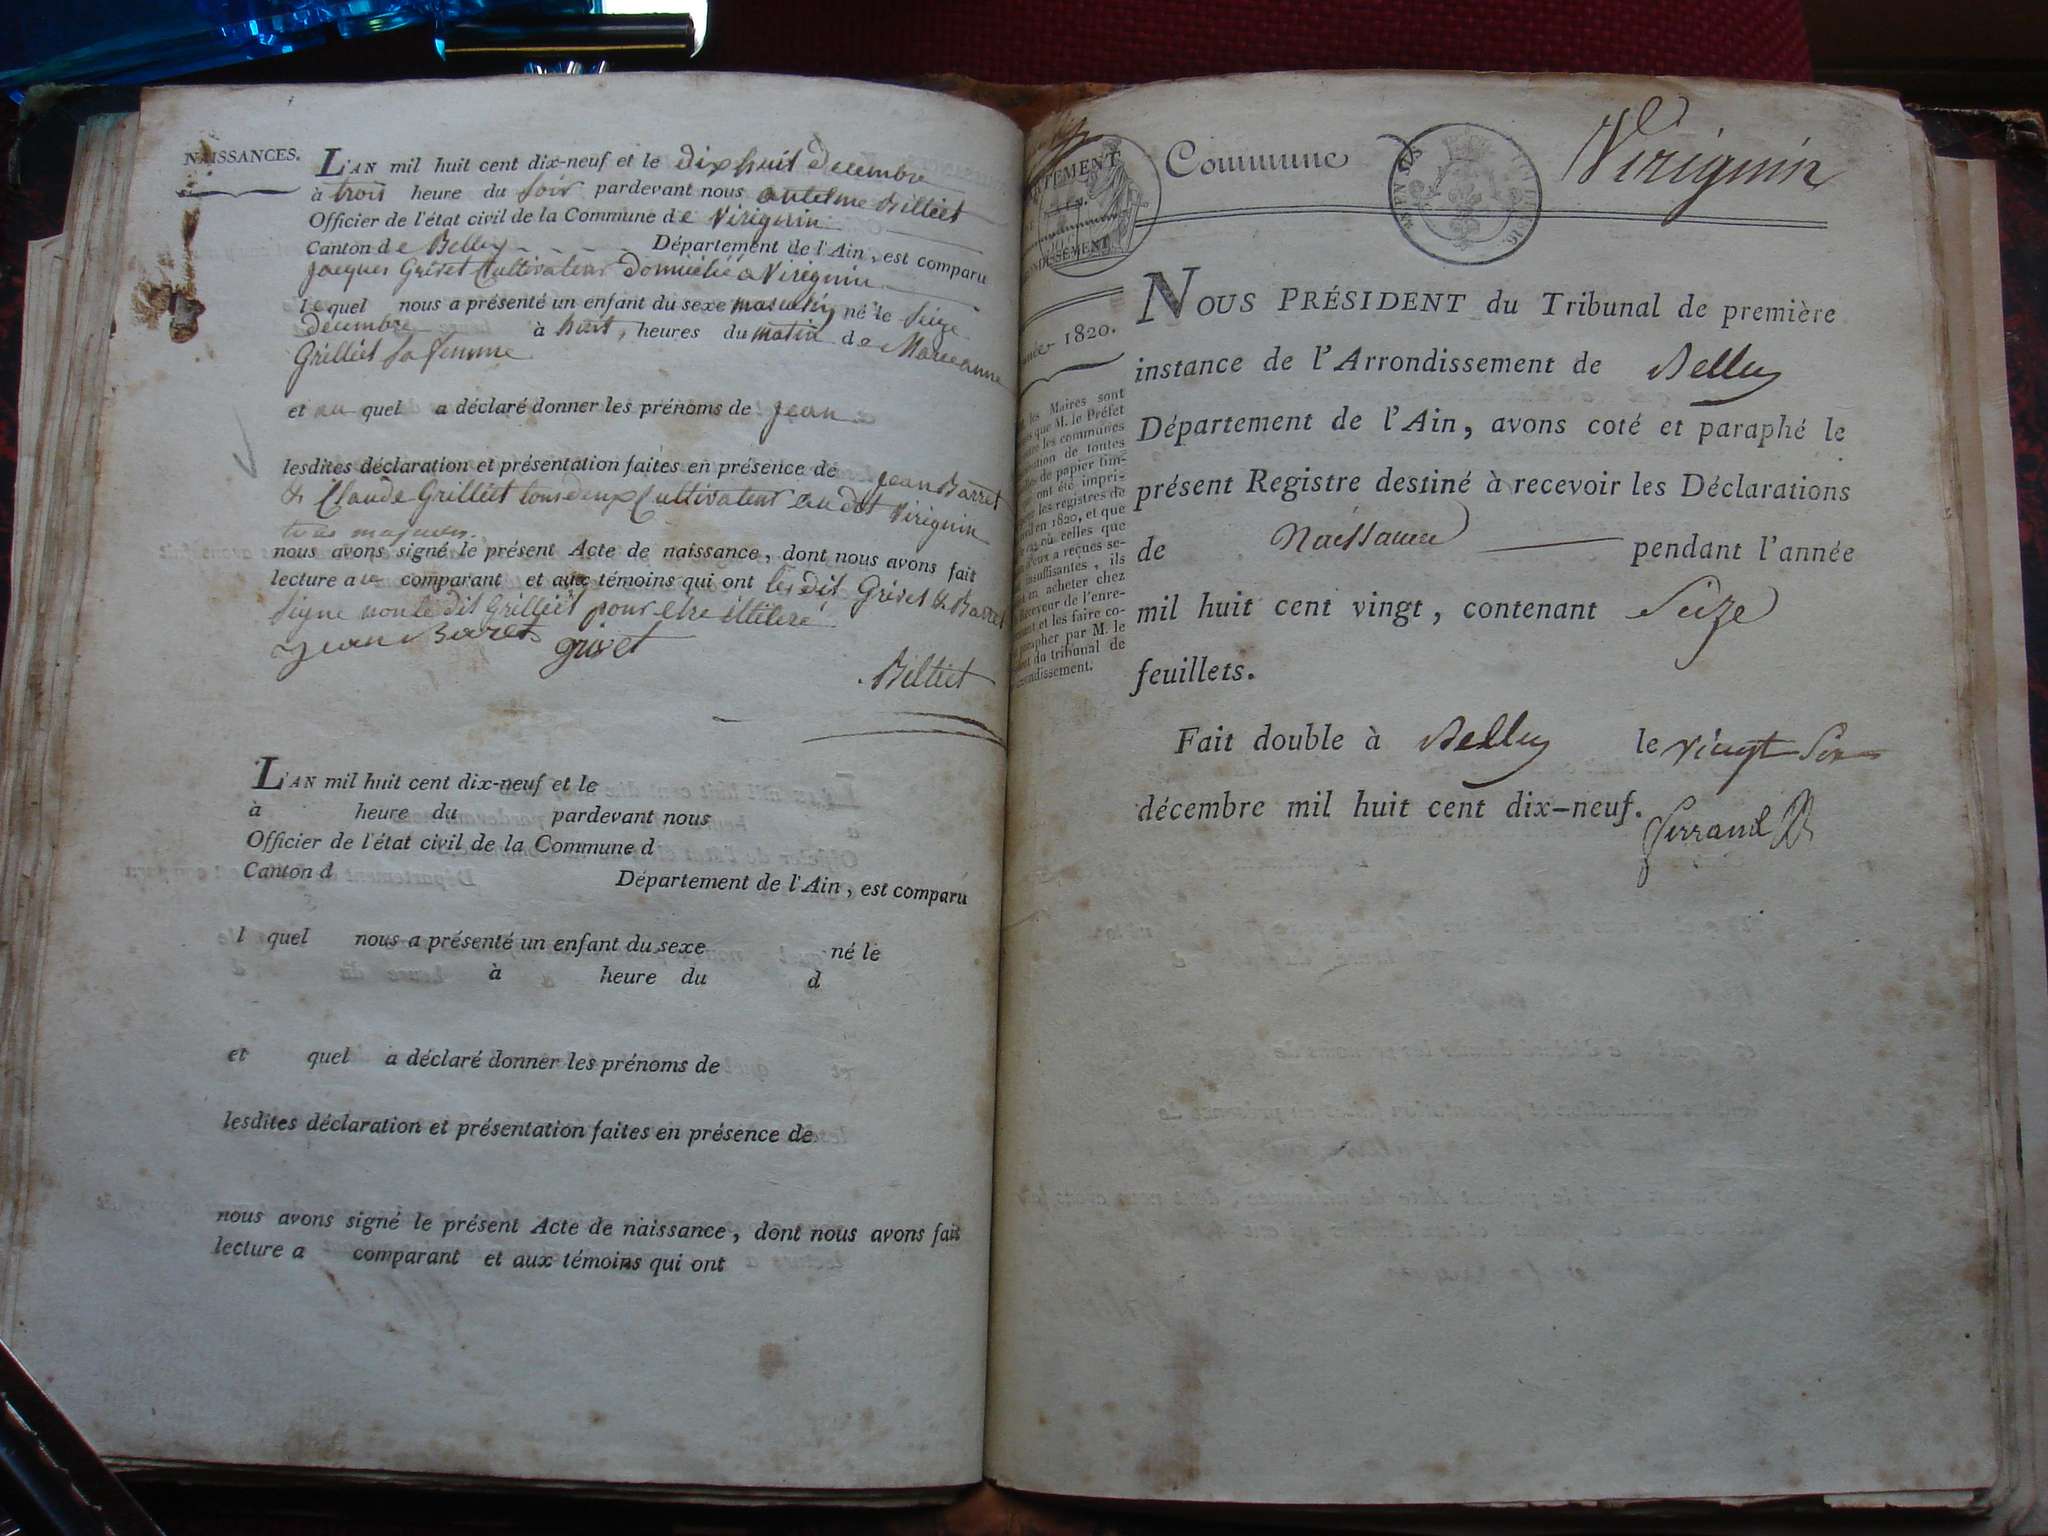 NAISSANCES.
L'AN mil huit cent dix-neuf et le dix huit decembre
à trois heure du soir pardevant nous antelme Billiet
Officier de l'état civil de la Commune de Virignin
Canton de Belley Département de l'Ain, est comparu
jacques Grivet Cultivateur domicilié a Virignin
lequel nous a présenté un enfant du sexe masculin né le seize
decembre à huit, heures du matin de Marieanne
Grilliet sa femme
et au quel a déclaré donner les prénoms de jean
lesdites déclaration et présentation faites en présence de jean Barret
& Claude Grilliet tous deux Cultivateur au dit Virignin
nous avons signé le présent Acte de naissance, dont nous avons fait
lecture au comparant et aux témoins qui ont les dit Grivet & Barret
signe non le dit Grilliet pour etre illitere
jean Barret grivet
Billiet
L'AN mil huit cent dix-neuf et le
à heure du pardevant nous
Officier de l'état civil de la Commune d
Canton d Département de l'Ain, est comparu
l quel nous a présenté un enfant du sexe né le
à heure du d
et quel a déclaré donner les prénoms de
lesdites déclaration et présentation faites en présence de
nous avons signé le présent Acte de naissance, dont nous avons fait
lecture a comparant et aux témoins qui ont
Commune Virignin
1820.
les Maires sont
que M. le Préfet
les communes
de toutes
de papier tim-
ont été impri-
les régistres de
en 1820, et que
où celles que
a reçues se-
insuffisantes, ils
en acheter chez
Receveur de l'enre-
et les faire co-
parapher par M. le
du tribunal de
NOUS PRÉSIDENT du Tribunal de première
instance de l'Arrondissement de Belley
Département de l'Ain, avons coté et paraphé le
présent Registre destiné à recevoir les Déclarations
de Naissance pendant l'année
mil huit cent vingt, contenant Seize
feuillets.
Fait double à Belley le vingt six
décembre mil huit cent dix-neuf.
Ferrand